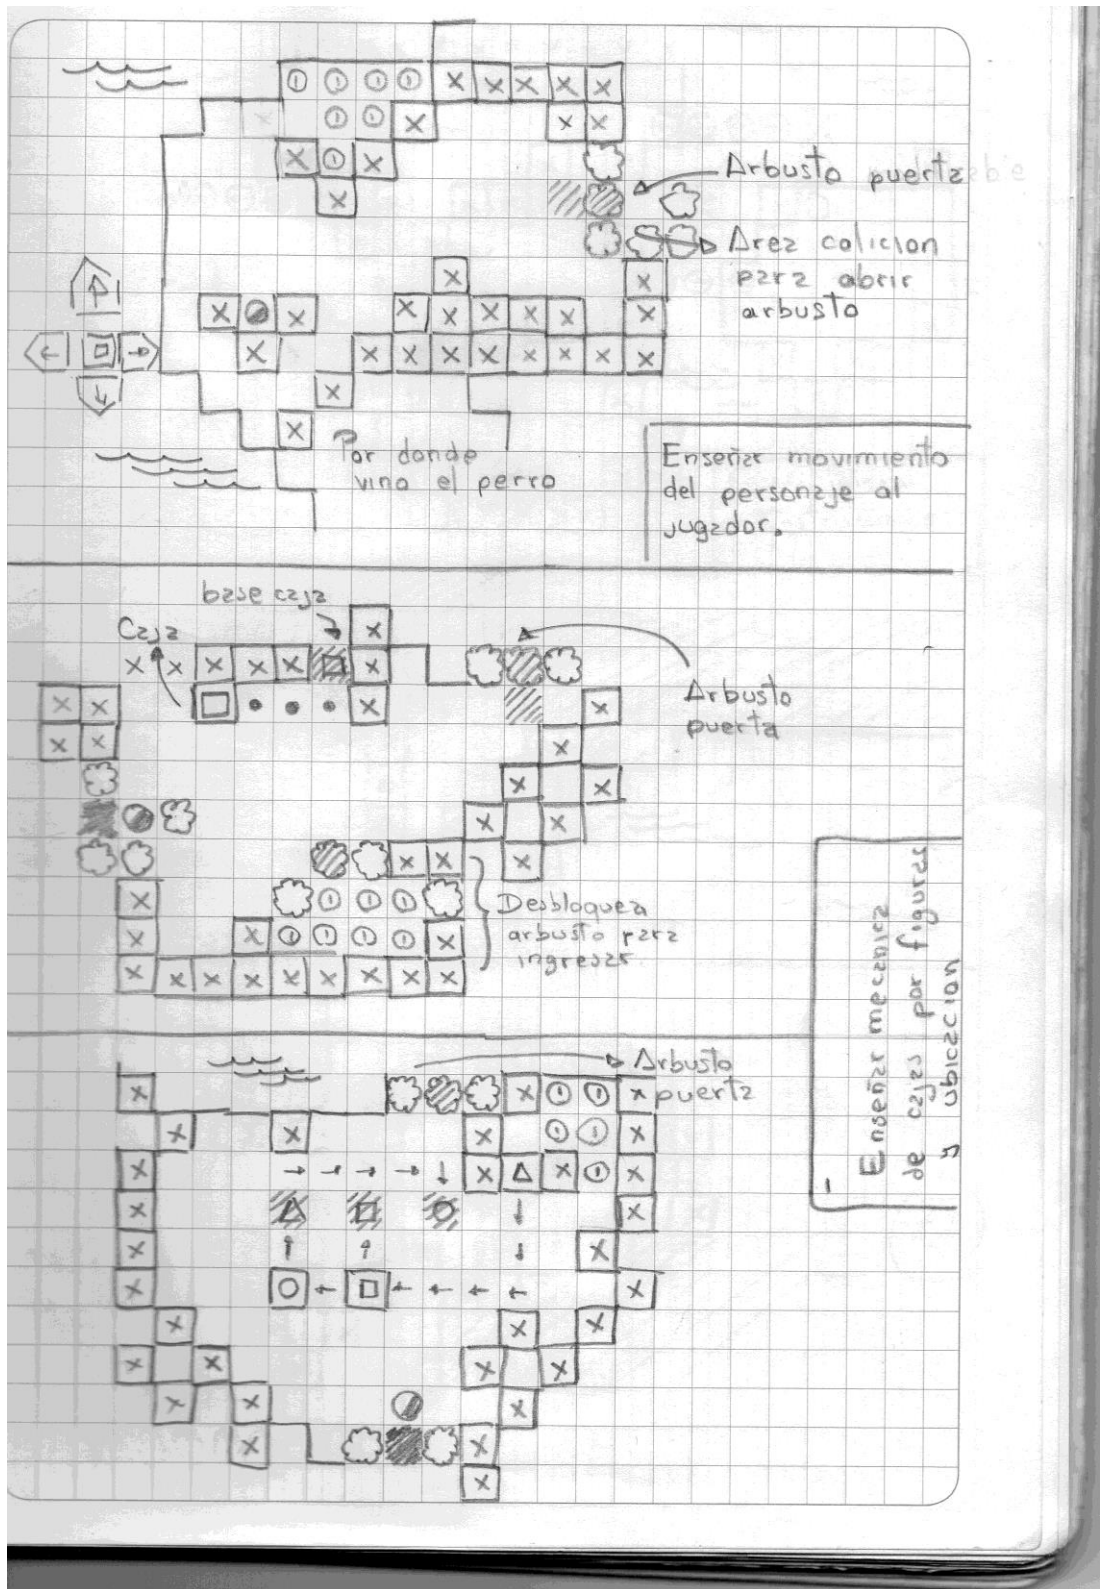 Arbusto puerta
Area colicion
para abrir
arbusto
Por donde
vino el perro
Enseñar movimiento
del personaje al
jugador.
base caja
Caja
Arbusto
puerta
Desbloquea
arbusto para
ingresar
Enseñar mecanica
de cajas por figuras
y ubicacion
Arbusto
puerta